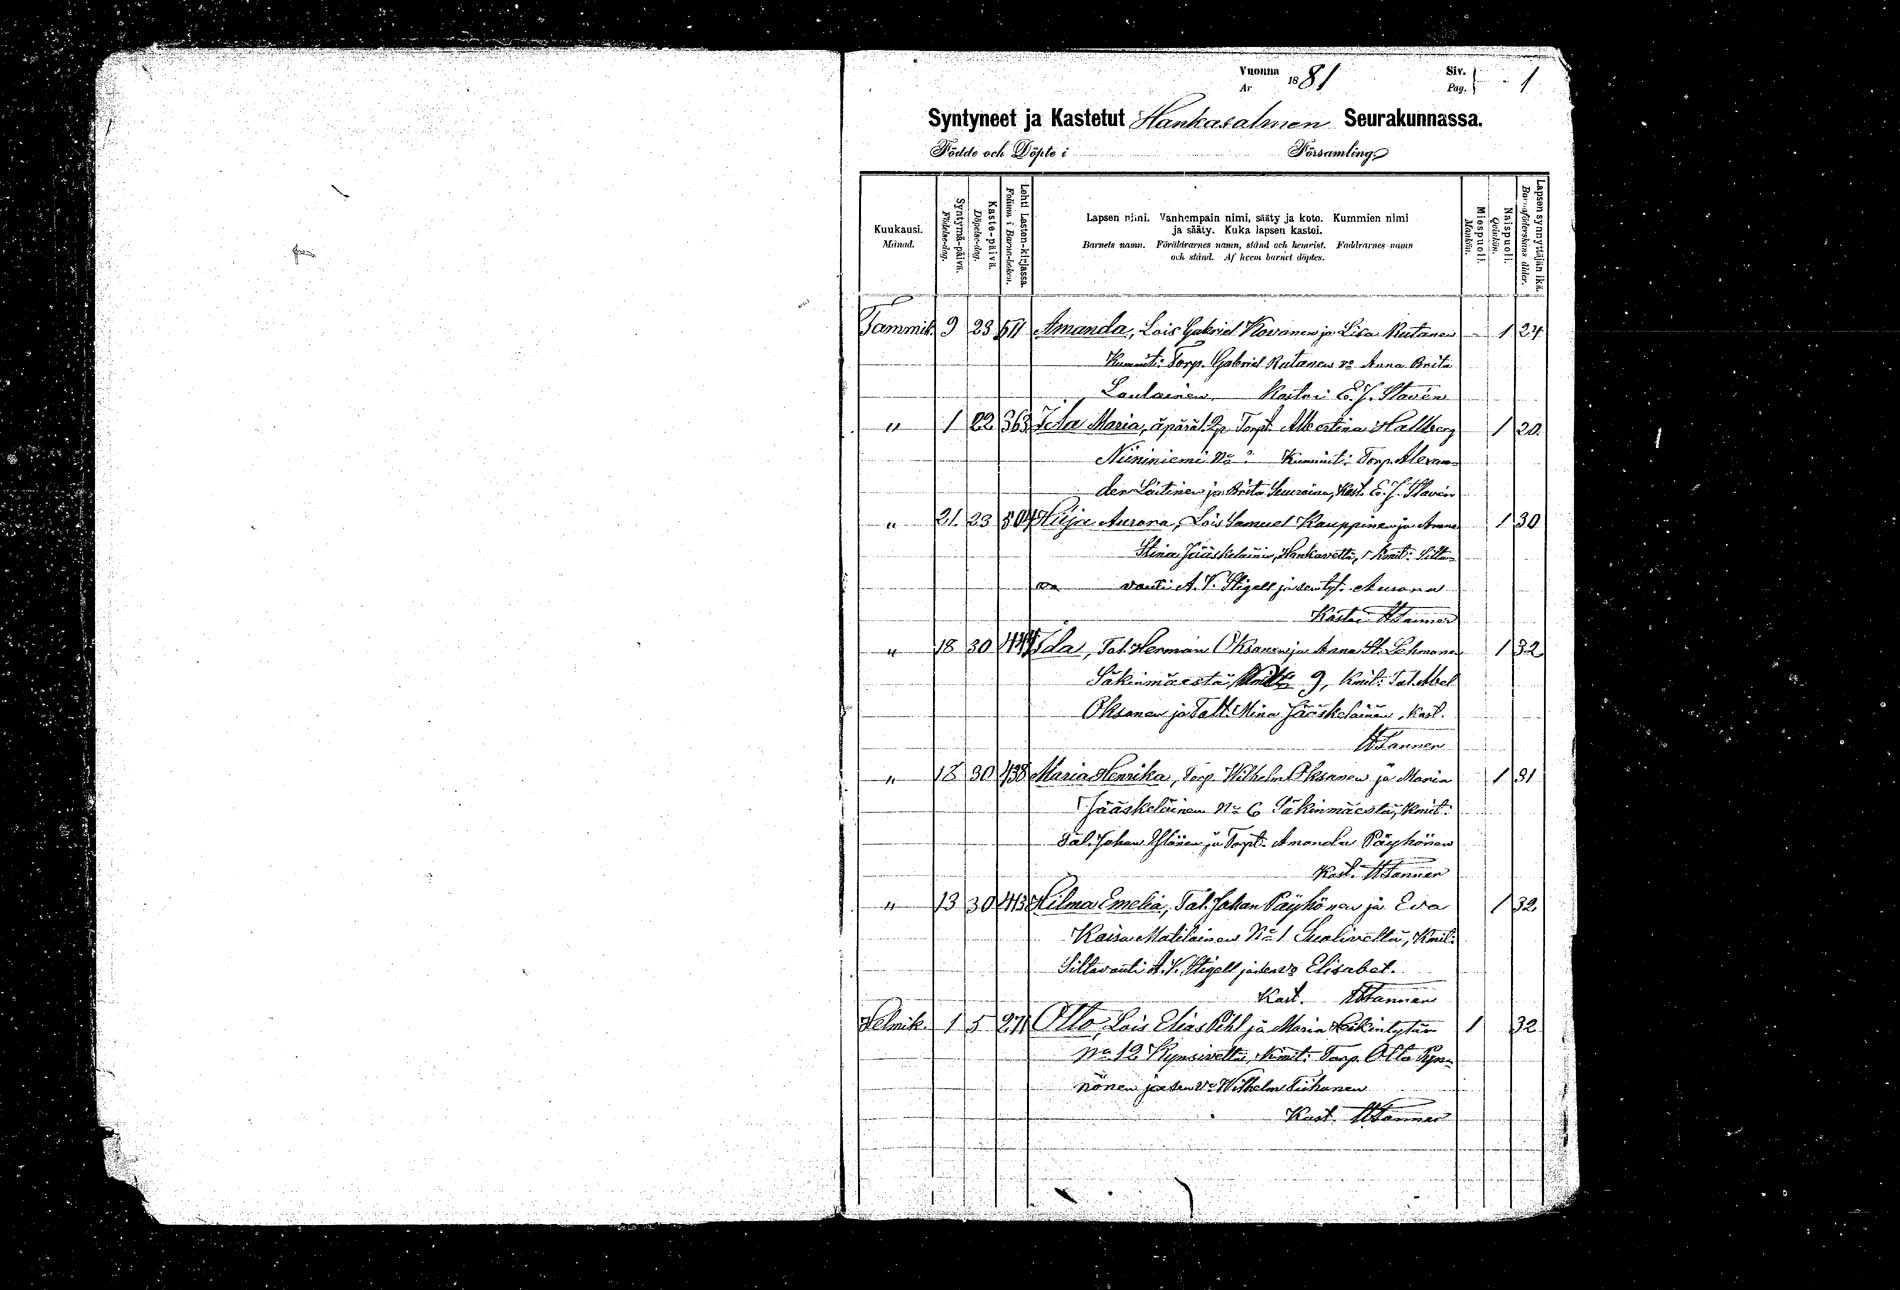 Vuonna 1881 Siv. 1
Ar Pag.
Syntyneet ja Kastetut Hankasalmen Seurakunnassa.
Födde och Döpte i Församling
Kuukausi. Månad.
Syntymä-päivä. Födelse-dag.
Kaste-päivä. Döpelse-dag.
Lehti Lasten-kirjassa. Folium i Barna-boken.
Lapsen nimi. Vanhempain nimi, sääty ja koto. Kummien nimi
ja sääty. Kuka lapsen kastoi.
Barnets namn. Föräldrarnes namn, stånd och hemvist. Faddrarnes namn
och stånd. Af hvem barnet döptes.
Miespuoli. Mankön.
Naispuoli. Qvinkön.
Lapsen synnyttäjän ikä. Barnaföderskans ålder.
Tammik. 9 23 511 Amanda, Lois Gabriel Kovanen ja Lisa Rutanen - 1 24
Kummit: Torp. Gabriel Rutanen vo Anna Brita
Laulainen. Kastoi E. J. Stavén
" 1 22 363 Ida Maria, äpärä l. Torpt. Albertina Hallberg 1 20
Niininiemi No Kummit: Torp. Alexan=
der Laitinen ja Brita Kast. E. J. Stavén
" 21 23 504 Hilja Aurora, Lois Samuel Kauppinen ja Anna 1 30
Stina Jääskeläinen, Hankavetta, Kmit: Silta=
vouti A. V. Stigell ja sen tyt. Aurora
Kastoi Tanner
" 18 30 444 Ida, Tal. Herman Oksanen ja Anna St. Lehmonen 1 32
Säkinmäestä 9, Kmit: Tal. Abel
Oksanen ja Talt. Mina Jääskeläinen, Kast.
Tanner
" 18 30 438 Maria Henrika, Torp. Wilhelm Oksanen ja Maria 1 31
Jääskeläinen No 6 Säkinmäestä, Kmit:
Tal. Johan ja Torpt. Amanda Päyhönen
Kast. Tanner
" 13 30 413 Hilma Emelia, Tal. Johan Päyhönen ja Eva 1 32
Kaisa Matilainen No 1 Suolivettä, Kmit:
Siltavouti A. V. Stigell ja sen vo Elisabet.
Kast. Tanner
Helmik. 1 5 271 Otto, Lois Elias Pihl ja Maria Heikintytär 1 32
No 12 Kynsivettä, Kmit: Torp. Otto Pyn=
nönen ja sen vo Wilhelm Tiihonen
Kast. Tanner